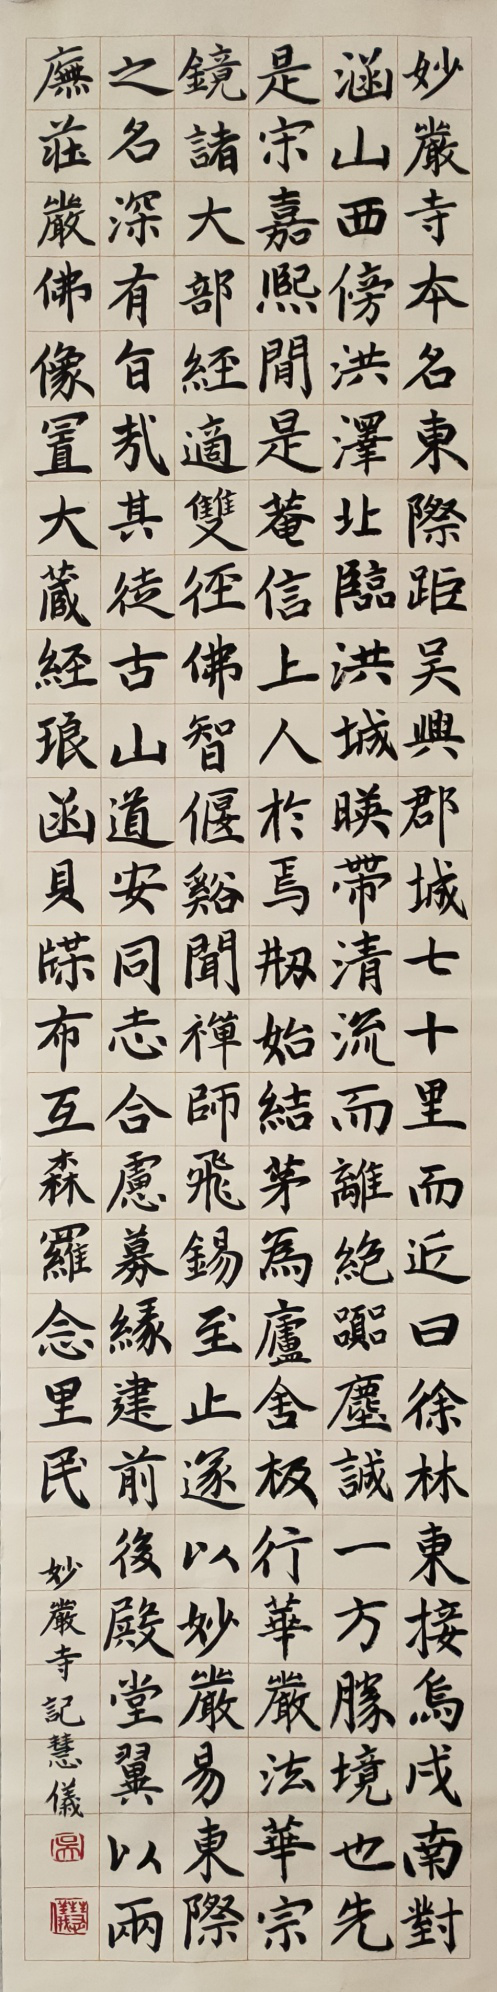 妙嚴寺本名東際距吴興郡城七十里而近曰徐林東接烏戌南對
涵山西傍洪澤北臨洪城暎帶清流而離絶躢塵誠一方勝境也先
是宋嘉熙間是菴信上人於焉剏始結茅為廬舍板行華嚴法華宗
鏡諸大部經適雙徑佛智偃谿聞禪師飛錫至止遂以妙嚴易東際
之名深有旨哉其徒古山道安同志合慮募緣建前後殿堂翼以兩
廡莊嚴佛像置大藏經琅函貝牒布互森羅念里民
妙嚴寺記慧儀